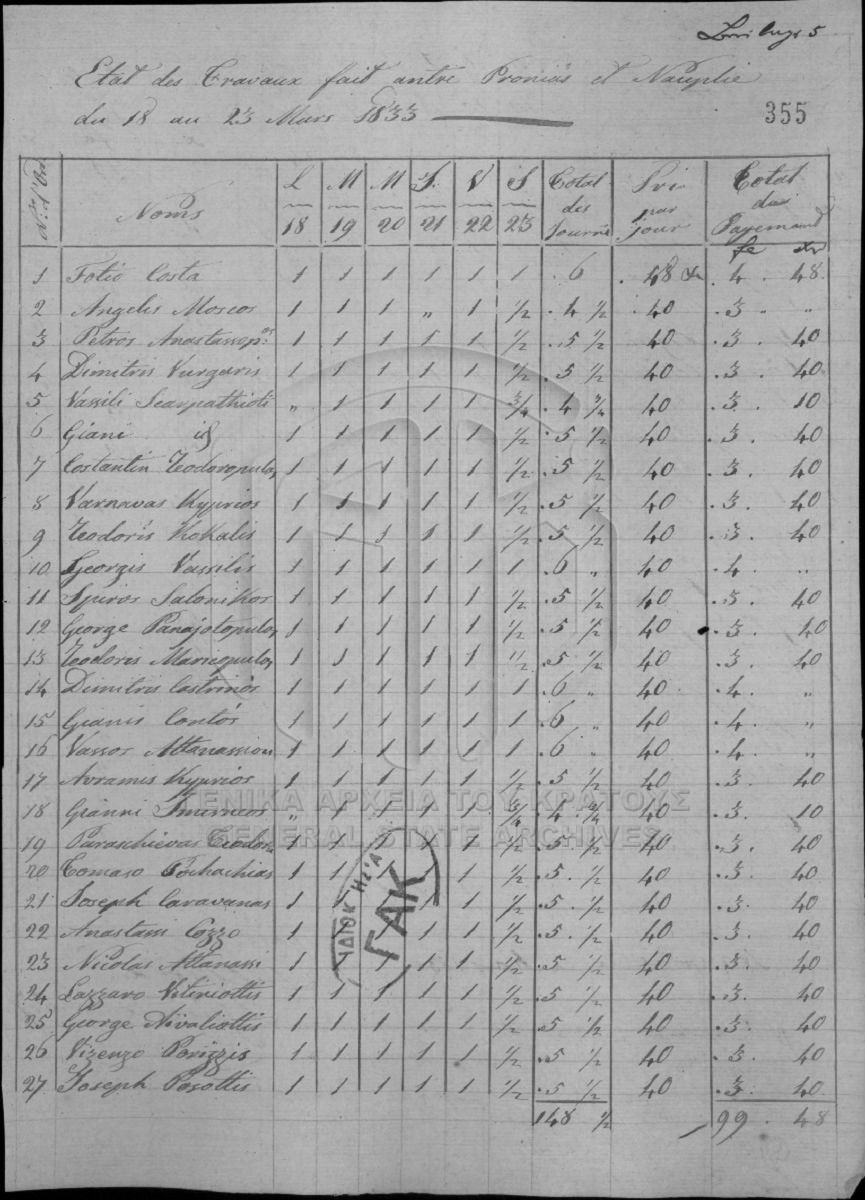 Etat des Travaux fait antre Pronias et Nauplie
du 18 au 23 Mars 1833
355
Noms L M M J. V S Total Prix Total
18 19 20 21 22 23 des par du
Journé jour Payement
1 Fotio Costa 1 1 1 1 1 1 6 48 4 48
2 Angelis Moscos 1 1 1 „ 1 1/2 4 1/2 40 3 „ „
3 Petros Anastassop.os 1 1 1 1 1 1/2 5 1/2 40 3 40
4 Dimitris Vurgaris 1 1 1 1 1 1/2 5 1/2 40 3 40
5 Vassili Scarpathioti „ 1 1 1 1 3/4 4 3/4 40 3 10
6 Giani id 1 1 1 1 1 1/2 5 1/2 40 3 40
7 Costantin Teodoropulos 1 1 1 1 1 1/2 5 1/2 40 3 40
8 Varnavas Kyprios 1 1 1 1 1 1/2 5 1/2 40 3 40
9 Teodoris Kokalis 1 1 1 1 1 1/2 5 1/2 40 3 40
10 Georgis Vassilis 1 1 1 1 1 1 6 „ 40 4 „
11 Spiros Salonikos 1 1 1 1 1 1/2 5 1/2 40 3 40
12 George Panajotopulos 1 1 1 1 1 1/2 5 1/2 40 3 40
13 Teodoris Maricopulos 1 1 1 1 1 1/2 5 1/2 40 3 40
14 Dimitris Castrinos 1 1 1 1 1 1 6 „ 40 4 „
15 Gianis Contós 1 1 1 1 1 1 6 „ 40 4 „
16 Vassos Attanassiou 1 1 1 1 1 1 6 „ 40 4 „
17 Avramis Kyprios 1 1 1 1 1 1/2 5 1/2 40 3 40
18 Gianni Smirneos „ 1 1 1 1 3/4 4 3/4 40 3 10
19 Paraschievas Teodoru 1 1 1 1 1 1/2 5 1/2 40 3 40
20 Tomaso 1 1 1 1 1 1/2 5 1/2 40 3 40
21 Joseph Caravanas 1 1 1 1 1 1/2 5 1/2 40 3 40
22 Anastassi Cozzo 1 1 1 1 1 1/2 5 1/2 40 3 40
23 Nicolas Attanassi 1 1 1 1 1 1/2 5 1/2 40 3 40
24 Lazzaro Vitiniottis 1 1 1 1 1 1/2 5 1/2 40 3 40
25 George Aivaliottis 1 1 1 1 1 1/2 5 1/2 40 3 40
26 Vizenzo Parizzis 1 1 1 1 1 1/2 5 1/2 40 3 40
27 Joseph Pasottis 1 1 1 1 1 1/2 5 1/2 40 3 40
148 1/2 99 48
ΓΕΝΙΚΑ ΑΡΧΕΙΑ ΤΟΥ ΚΡΑΤΟΥΣ
GENERAL STATE ARCHIVES
ΓΑΚ